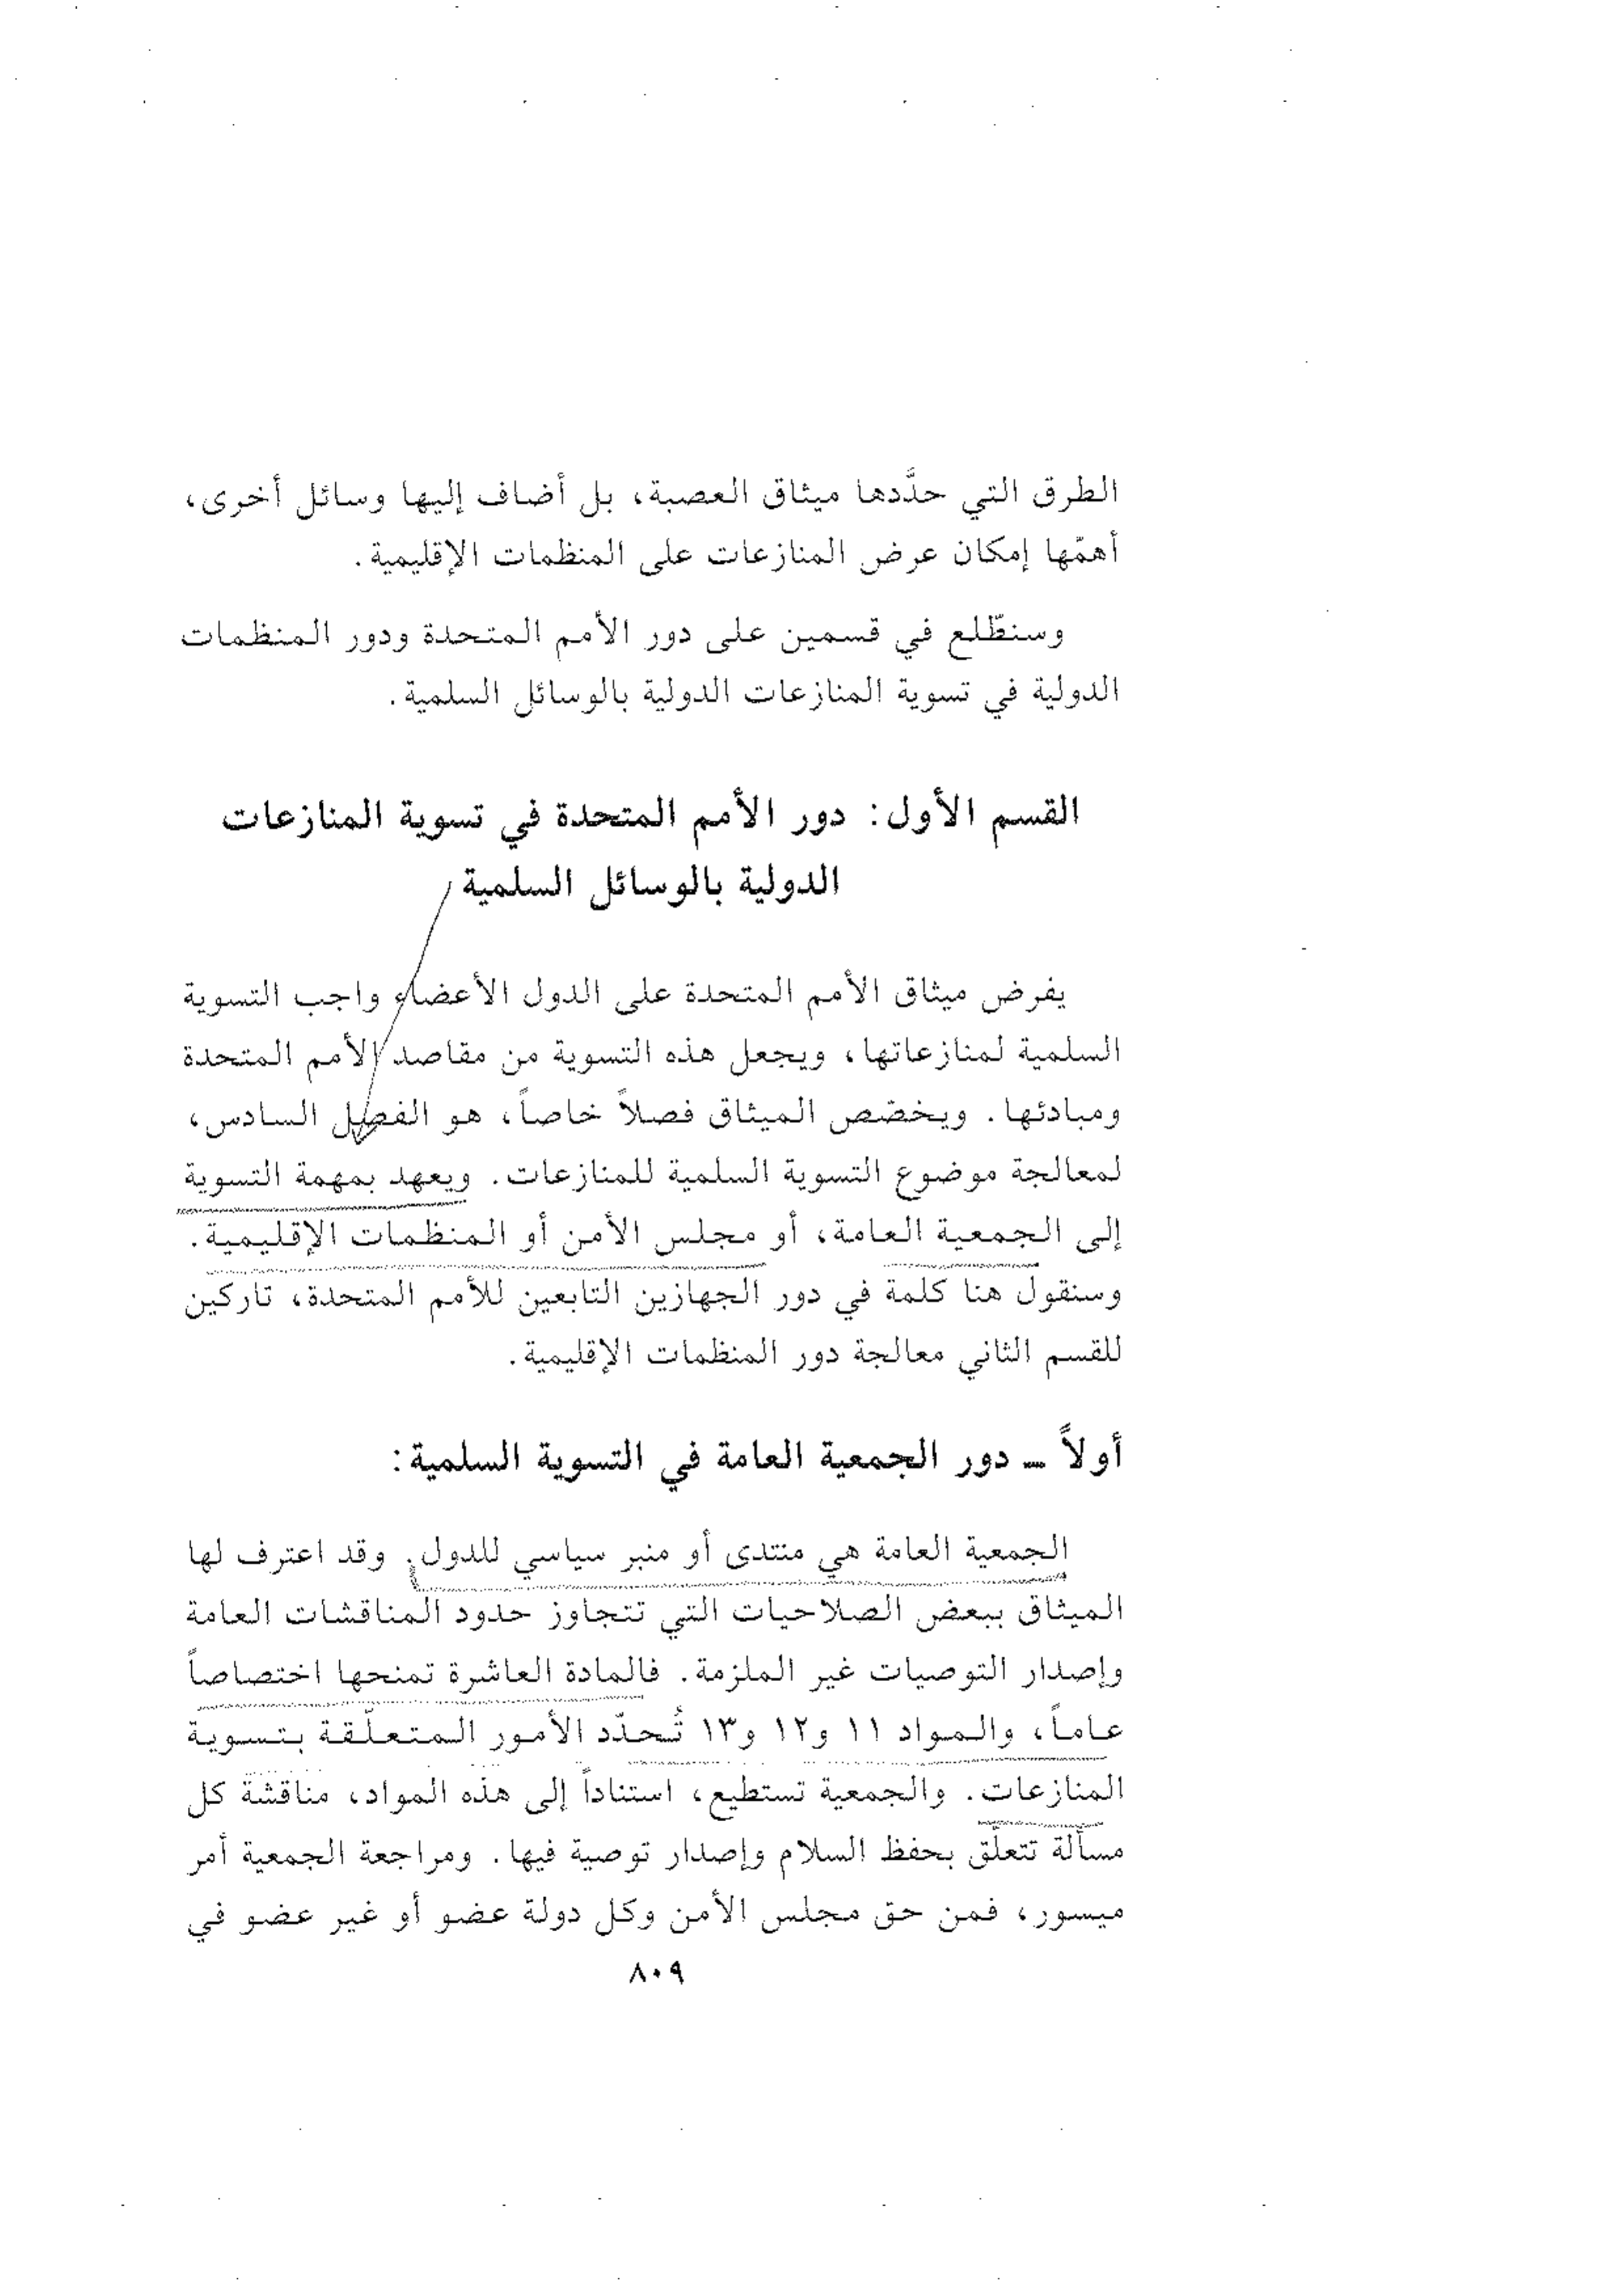 الطرق التي حدَّدها ميثاق العصبة، بل أضاف إليها وسائل أخرى،
أهمّها إمكان عرض المنازعات على المنظمات الإقليمية.
وسنطّلع في قسمين على دور الأمم المتحدة ودور المنظمات
الدولية في تسوية المنازعات الدولية بالوسائل السلمية.
القسم الأول: دور الأمم المتحدة في تسوية المنازعات
الدولية بالوسائل السلمية
يفرض ميثاق الأمم المتحدة على الدول الأعضاء واجب التسوية
السلمية لمنازعاتها، ويجعل هذه التسوية من مقاصد الأمم المتحدة
ومبادئها. ويخصّص الميثاق فصلاً خاصاً، هو الفصل السادس،
لمعالجة موضوع التسوية السلمية للمنازعات. ويعهد بمهمة التسوية
إلى الجمعية العامة، أو مجلس الأمن أو المنظمات الإقليمية.
وسنقول هنا كلمة في دور الجهازين التابعين للأمم المتحدة، تاركين
للقسم الثاني معالجة دور المنظمات الإقليمية.
أولاً ـ دور الجمعية العامة في التسوية السلمية:
الجمعية العامة هي منتدى أو منبر سياسي للدول. وقد اعترف لها
الميثاق ببعض الصلاحيات التي تتجاوز حدود المناقشات العامة
وإصدار التوصيات غير الملزمة. فالمادة العاشرة تمنحها اختصاصاً
عاماً، والمواد ١١ و١٢ و١٣ تُحدّد الأمور المتعلّقة بتسوية
المنازعات. والجمعية تستطيع، استناداً إلى هذه المواد، مناقشة كل
مسألة تتعلّق بحفظ السلام وإصدار توصية فيها. ومراجعة الجمعية أمر
ميسور، فمن حق مجلس الأمن وكل دولة عضو أو غير عضو في
٨٠٩